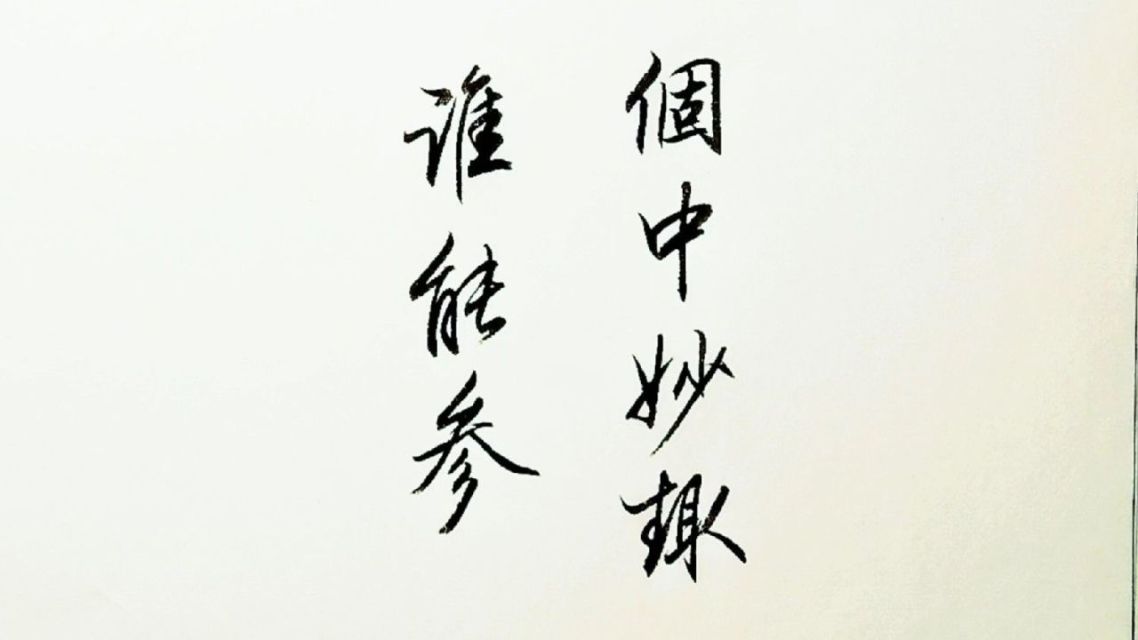 個中妙趣
谁能参